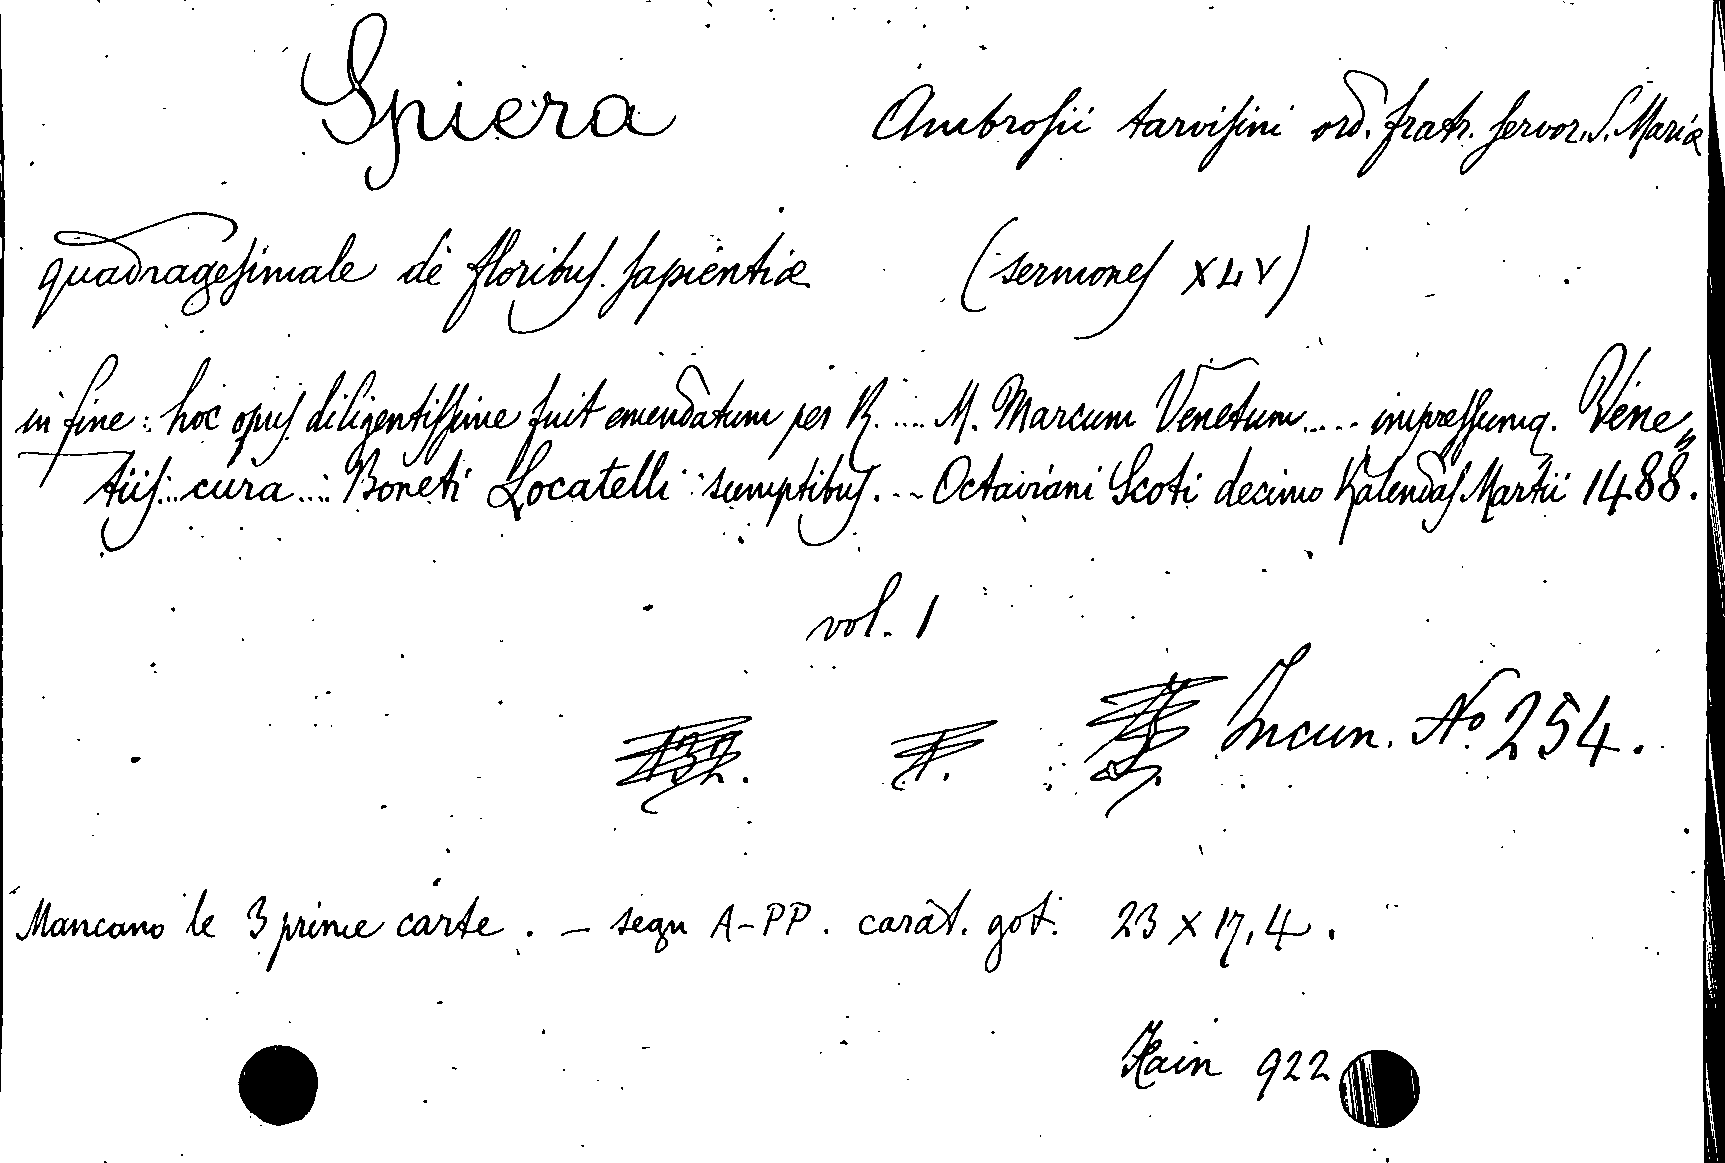 Spiera Ambrosii tarvisini ord. fratr. servor. S. Mariæ
quadragesimale de floribus sapientiæ (sermones XLV)
in fine: hoc opus diligentissime fuit emendatum per R. .... M. Marcum Venetum..... impressumq. Vene„
tiis... cura ... Boneti Locatelli sumptibus. .. Octaviani Scoti decimo Kalendas Martii 1488.
vol. 1
Incun. No 254.
Mancano le 3 prime carte. – segn A-PP. carat. got. 23 x 17,4.
Hain 922